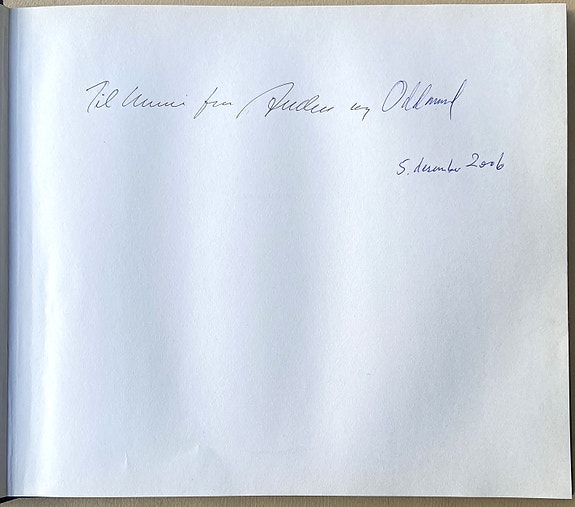 Til Unni fra Anders og Oddmund
5. desember 2006